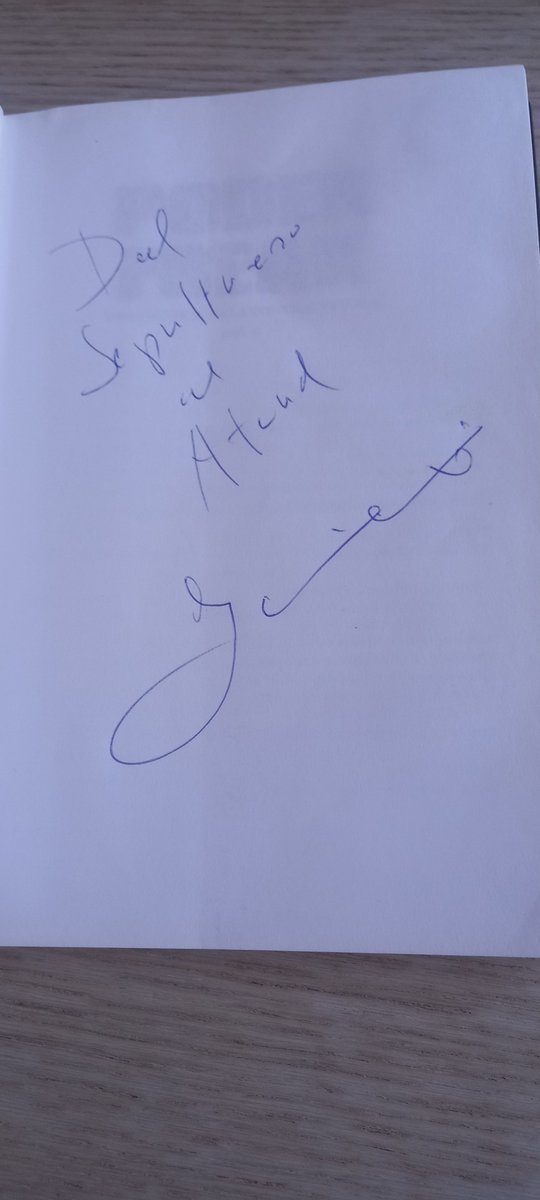 Del
Sepulturero
al
Ataud